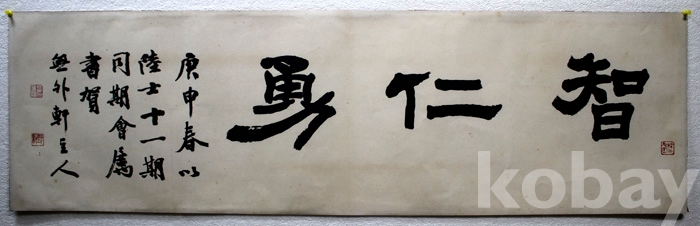 智仁勇
庚申春以
陸士十一期
同期會屬
書賀
無外軒主人
kobay